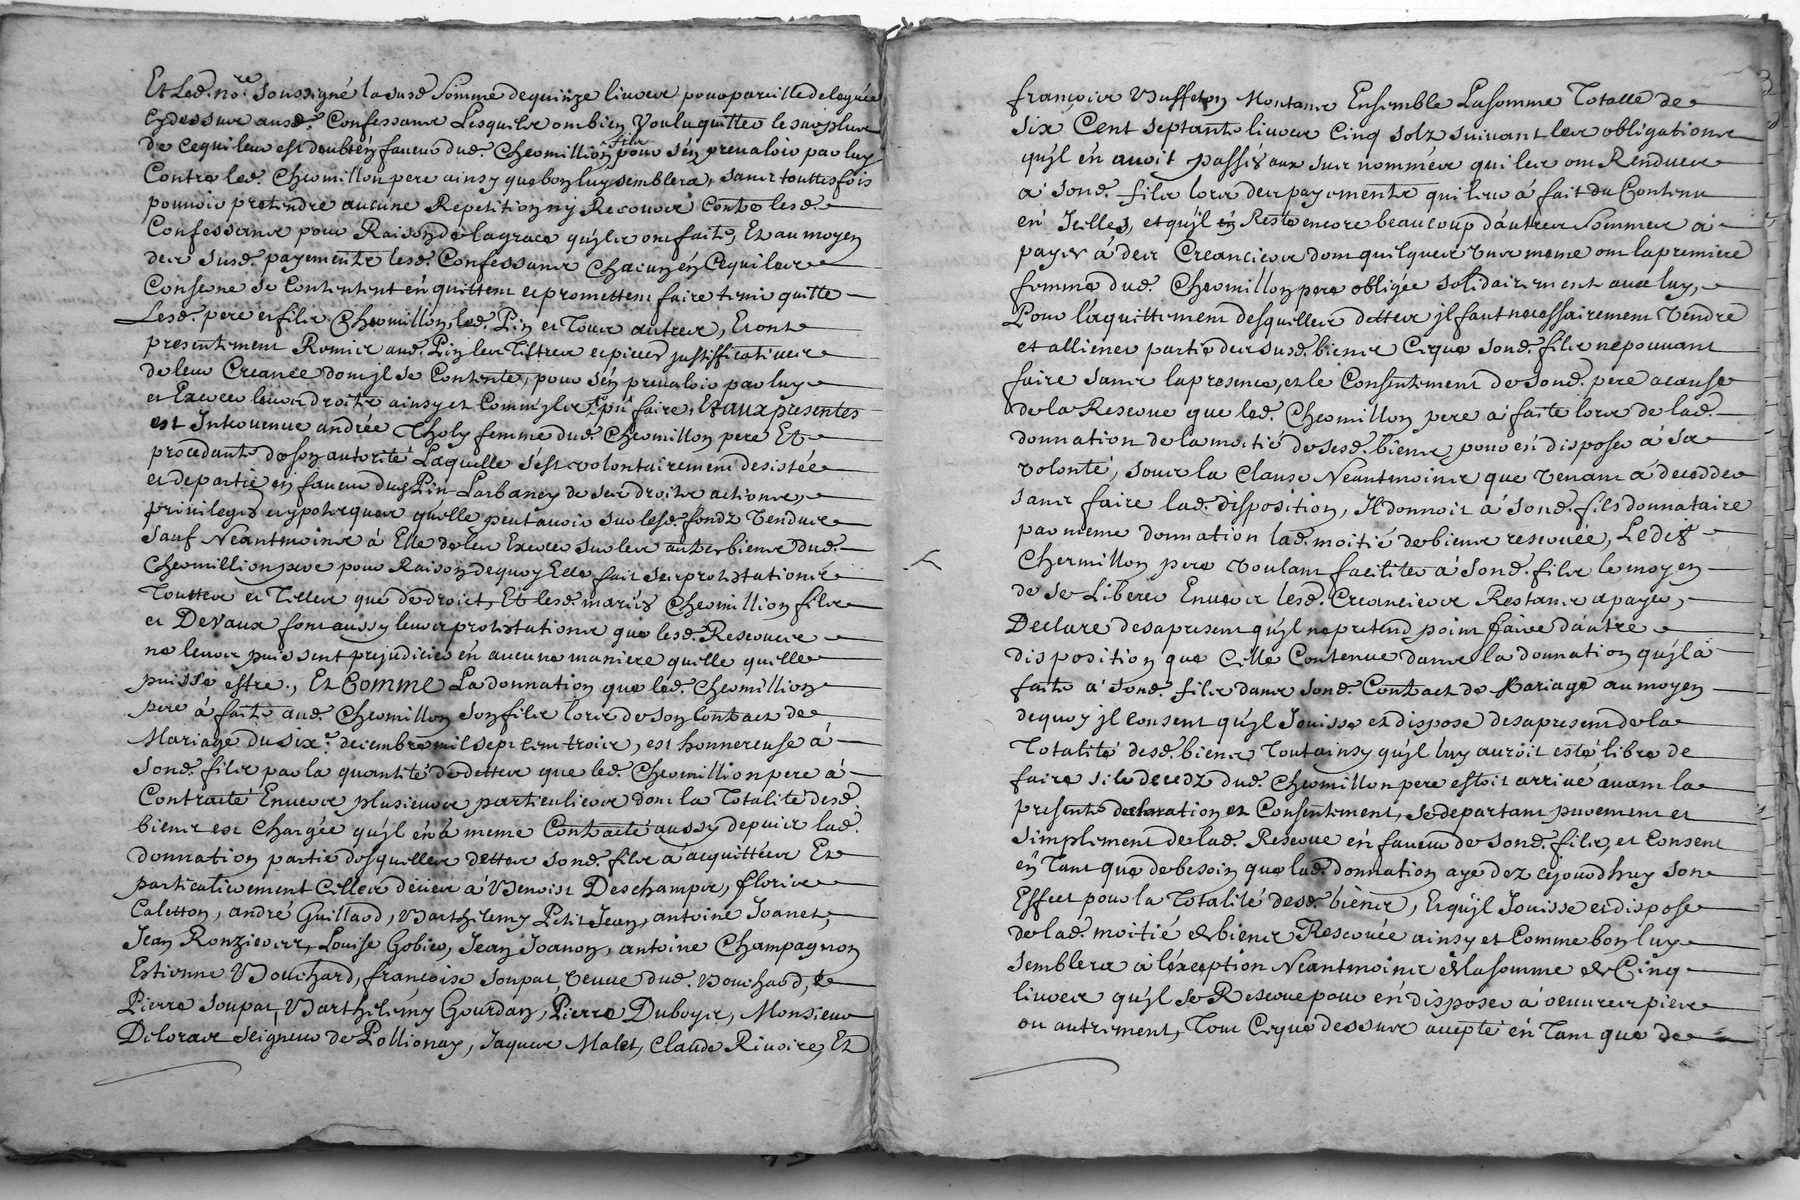 Et Led. no.re soussigné la susd somme de quinze livres pour pareille deleguée
cy dessus ausd. Confessans Lesquels ont bien voulu quitter le surplus
de ce qui leur est deub en faveur dud. Chermillion fils pour s'en prevaloir par luy
Contre led. Chermillon pere ainsy que bon luy semblera, sans touttesfois
pouvoir pretendre aucune Repetition ny Recours Contre lesd.
Confessans pour Raison de la grace qu'ils ont faite, Et au moyen
des susd. payements lesd. Confessans Chacun en Ce qui les
Conserne se Contentent en quittent et promettent faire tenir quitte
Lesd. pere et fils Chermillon, led. Pin et Tous autres, Et ont
presentement Remis aud. Pin les Tiltres et pieces justifficatives
de leur Creance dont jl se Contente, pour s'en prevaloir par luy
et Exercer leurs droits ainsy et Comm'jls pu faire, Et aux presentes
est Intervenue andrée Tholy femme dud. Chermillon pere Et
procedante de son autorité Laquelle s'est volontairement desistée
et departie en faveur dud Pin Larbaney de ses droits actions,
privileges et ypoteques quelle peut avoir sur lesd. fondz Vendus
sauf Neantmoins à Elle de les Exercer sur les autres biens dud.
Chermillion pere pour Raison de quoy Elle fait ses protestations
Touttes et Telles que de droict, Et lesd. mariés Chermillion fils
et Devaux font aussy leurs protestations que lesd. Reserves
ne leurs puissent prejudicier en aucune maniere quelle quelle
puisse estre., Et Comme La donnation que led. Chermillion
pere à faite aud. Chermillon son fils lors de son Contract de
Mariage du six.e decembre mil sept cent trois, est honnereuse à
sond. fils par la quantité de dettes que led. Chermillion pere à
Contracté Envers plusieurs particuliers dont la Totalité desd.
biens est Chargée qu'jl en à meme Contracté aussy depuis lad.
donnation partie desquelles dettes sond. fils à acquittées Et
particulierement Celles deües à Benoist Deschamps, floris
Caletton, andré Guillard, Barthelemy Petit Jean, antoine Joanet,
Jean Ronziers, Louise Gobier, Jean Joanon, antoine Champagnon
Estienne Bouchard, francoise Soupat, Veuve dud. Bouchard,
Pierre Soupat, Barthelemy Gourdan, Pierre Duboys, Monsieur
Deloras Seigneur de Pollionay, Jaques Malet, Claude Rivoire, Et
françois Buffeton Montans Ensemble La somme Totalle de
six Cent septante livres Cinq solz suivant les obligations
qu'jl en avoit passées aux sus nommés qui les ont Rendues
à sond. fils lors des payements qui leur à fait du Contenu
en Jcelles, et qu'jl Reste encore beaucoup d'autres sommes à
payer à des Creanciers dont quelques uns meme ont la premiere
femme dud. Chermillon pere obligée solidairement avec luy,
Pour l'aquittement desquelles dettes jl faut necessairement Vendre
et alliener partie des susd. biens Ce que sond. fils ne pouvant
faire sans la presence, et le Consentement de sond. pere acause
de la Reserve que led. Chermillon pere à faite lors de lad.
donnation de la moitié de sesd. biens pour en disposer à sa
volonté, sous la Clause Neantmoins que Venant à deceder
sans faire lad. disposition, Il donnoit à sond. fils donnataire
par meme donnation lad. moitié de biens reservée, Ledit
Chermillon pere voulant faciliter à sond. fils le moyen
de se Liberer Envers lesd. Creanciers Restans a payer,
Declare desapresent qu'jl ne pretend point faire d'autre
disposition que Celle Contenue dans la donnation qu'jl a
faite à sond. fils dans sond. Contract de Mariage au moyen
dequoy jl consent qu'jl Jouisse et dispose desapresent de la
Totalité desd. biens Tout ainsy qu'jl luy auroit esté libre de
faire si le decedz dud. Chermillon pere estoit arrivé avant la
presente declaration et Consentement, se departant purement et
simplement de lad. Reserve en faveur de sond. fils, et Consent
en Tant que de besoin que lad. donnation aye dez cejourdhuy son
Effect pour la Totalité desd. biens, Et qu'jl Jouisse et dispose
de lad. moitié de biens Reservée ainsy et Comme bon luy
semblera à l'exception Neantmoins de la somme de Cinq
livres qu'jl se Reserve pour en disposer à oeuvres pies
ou autrement, Tout Ce que dessus accepté en Tant que de